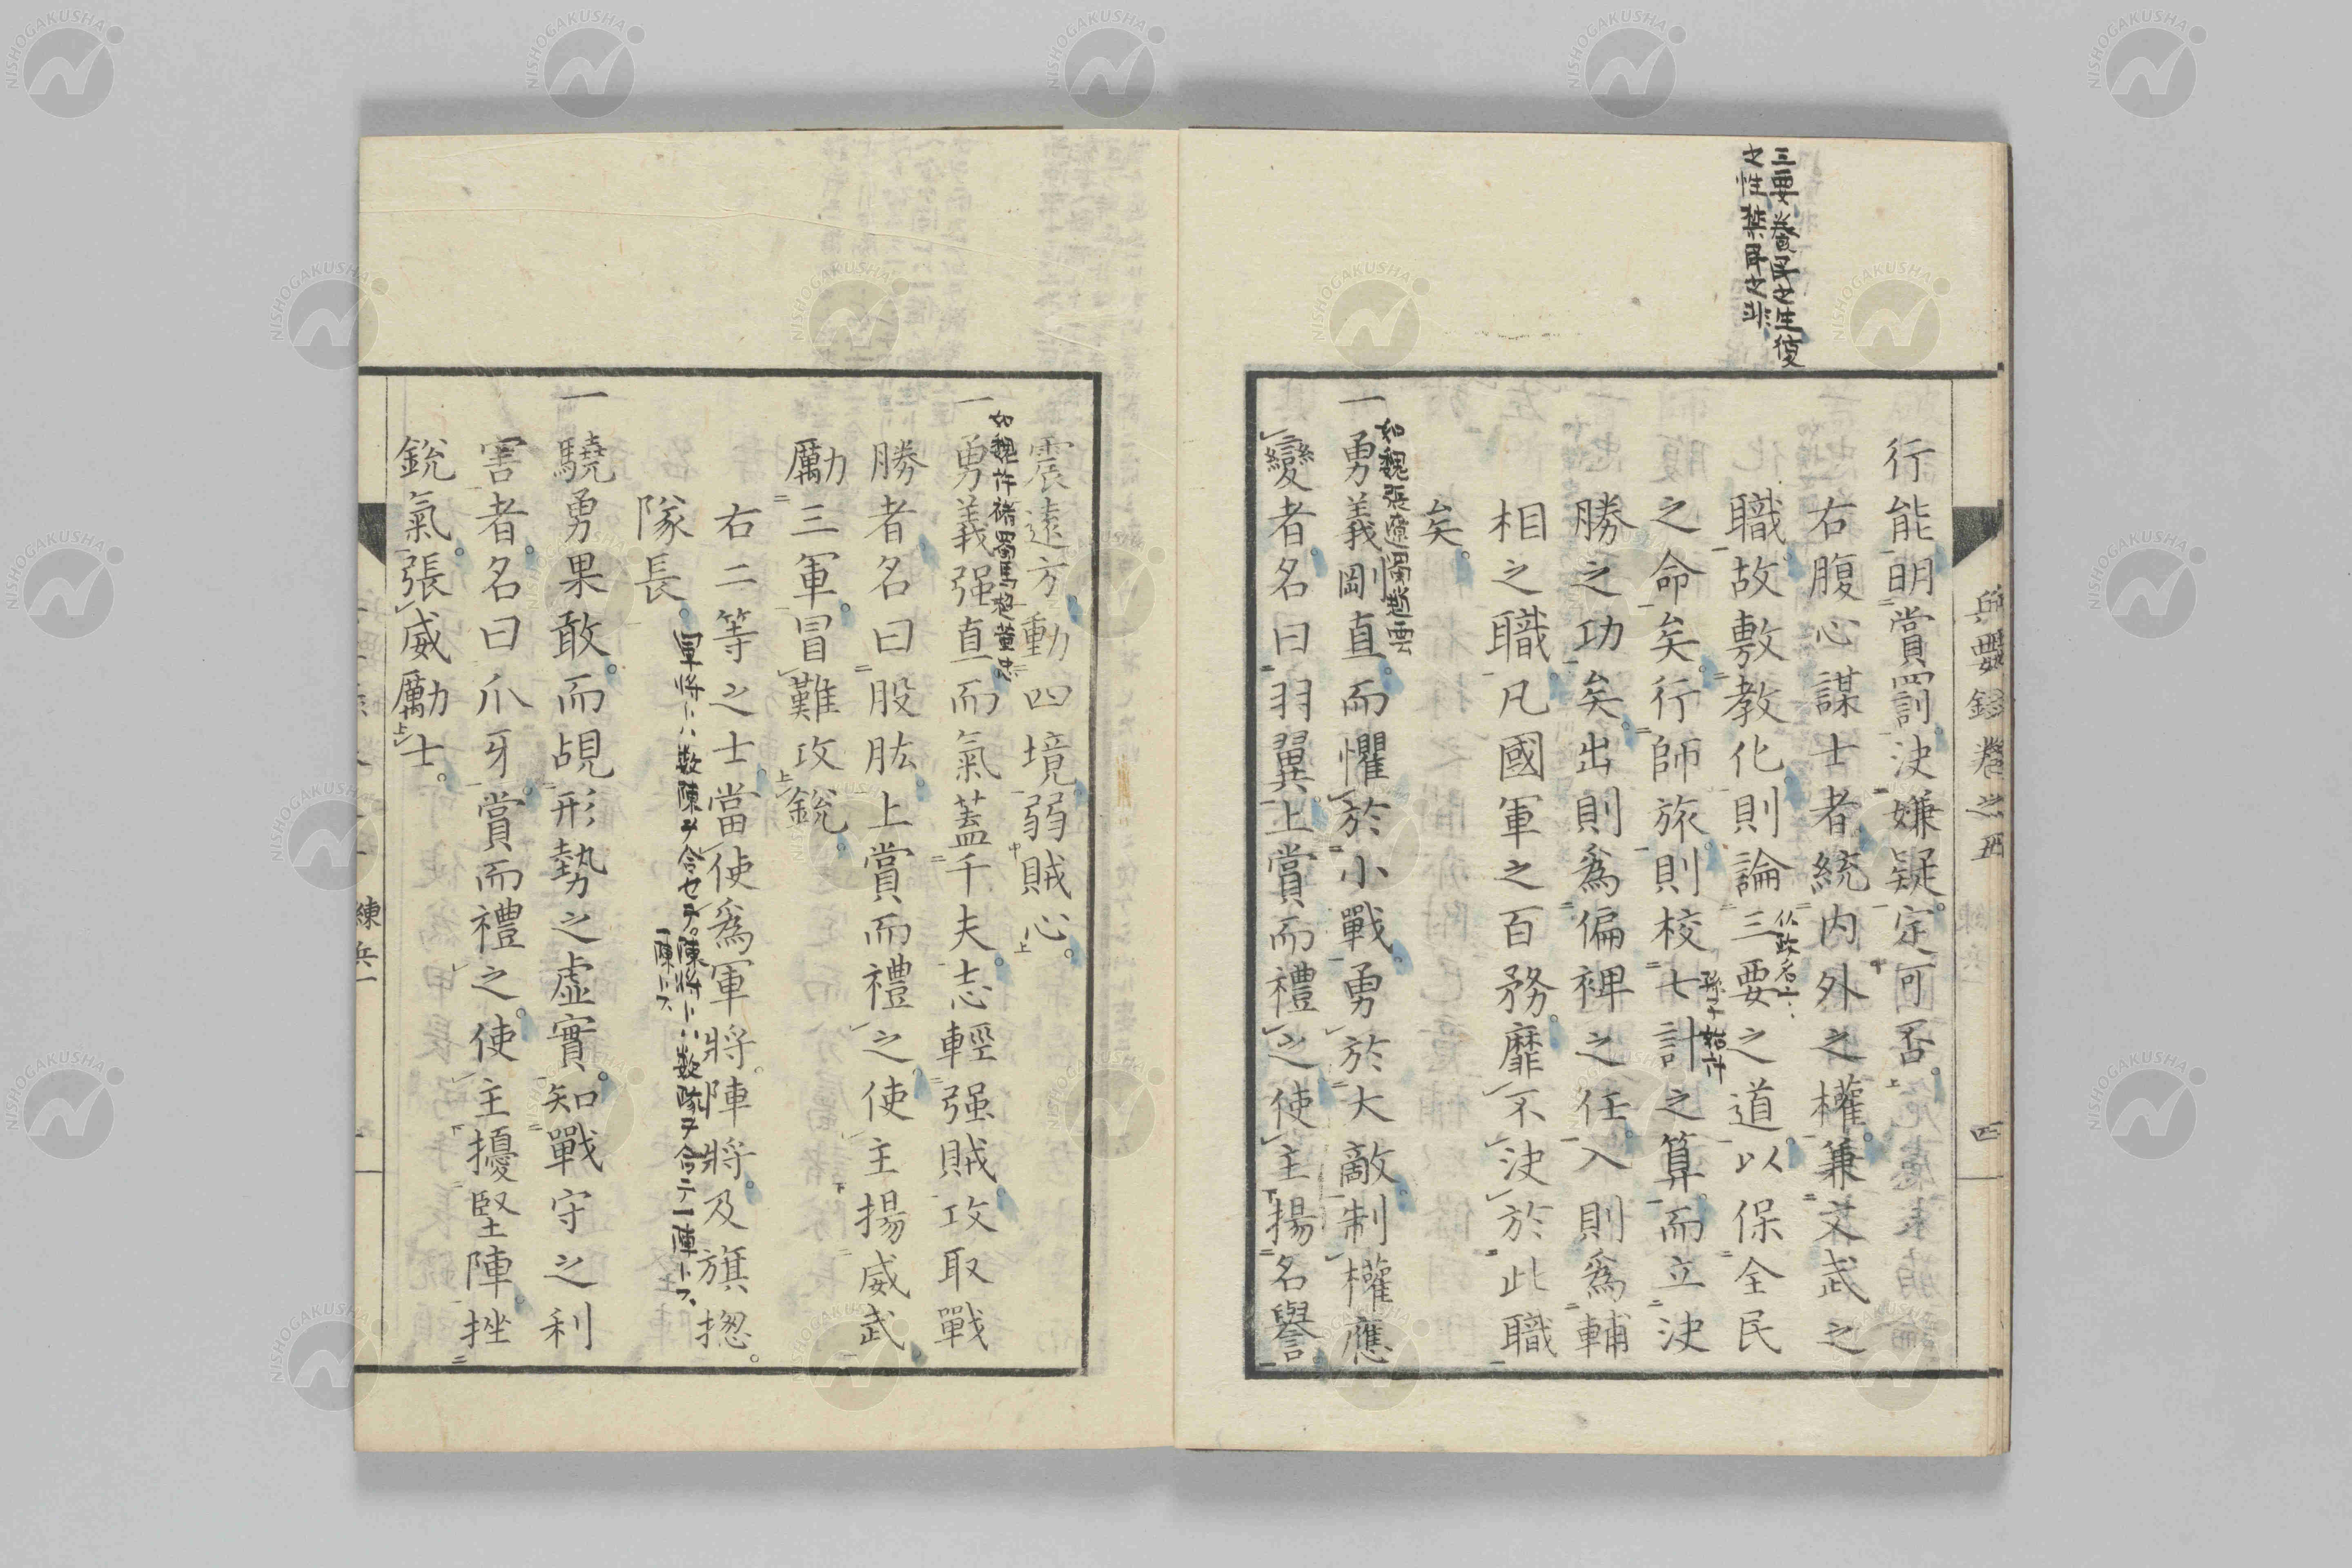 三要養民之生復
之性禁民之非
兵要録卷之五
四
行能明賞罰決嫌疑定可否
右腹心謀士者統内外之權兼文武之
職故敷教化則論三要之道以保全民
之命矣行師旅則校七計之算而立決
孫子始計
勝之功矣出則爲偏裨之任入則爲輔
相之職凡國軍之百務靡不決於此職
矣
如魏張遼蜀趙雲
一勇義剛直而懼於小戰勇於大敵制權應
變者名曰羽翼上賞而禮之使主揚名譽
震遠方動四境弱賊心
如魏許褚蜀馬超黄忠
一勇義强直而氣蓋千夫志輕强賊攻取戰
勝者名曰股肱上賞而禮之使主揚威武
勵三軍冒難攻銳
右二等之士當使爲軍將陣將及旗揔
隊長
軍將トハ数陳ヲ令セヲ陳將トハ数隊ヲ合テ一陳トス
一陳トス
一驍勇果敢而覘形勢之虚實知戰守之利
害者名曰爪牙賞而禮之使主擾堅陣挫
銳氣張威勵士
練兵一
NISHOGAKUSHA